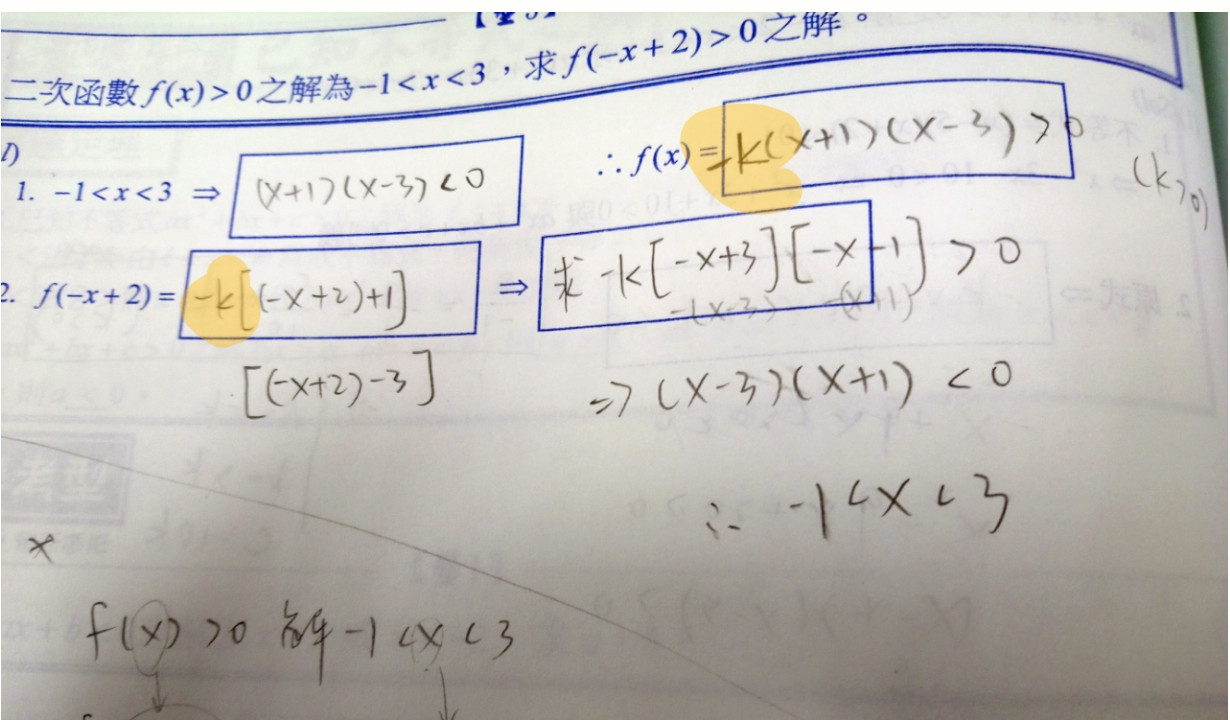 二次函數 f(x)>0 之解為 −1<x<3，求 f(−x+2)>0 之解。
1. −1<x<3 ⇒ (x+1)(x-3)<0
∴ f(x)= -k(x+1)(x-3)>0
(k>0)
2. f(−x+2)= -k[(-x+2)+1]
[(-x+2)-3]
⇒ 求 -k[-x+3][-x-1]>0
-(x-3) -(x+1)
⇒ (x-3)(x+1)<0
∴ -1<x<3
x
f(x)>0 解 -1<x<3